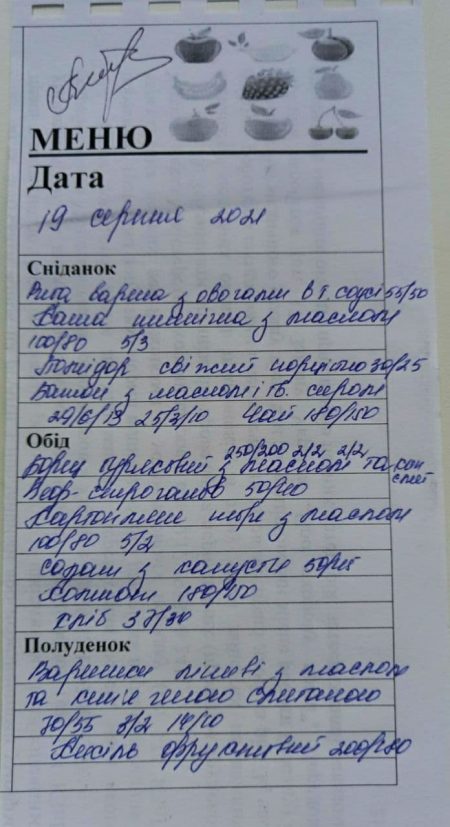 МЕНЮ
Дата
19 серпня 2021
Сніданок
Риба варена з овочами в т. соусі 55/50
Каша пшенична з маслом
100/80 5/3
Помідор свіжий порційно 30/25
Батон з маслом і тв. сиром
29/6/13 25/3/10 Чай 180/150
Обід
250/200 2/2 2/2
Борщ буряковий з маслом та
Беф-строганов 50/40
Картопляне пюре з маслом
100/80 5/2
салат з капусти
180/150
хліб 37/30
Полуденок
Вареники ліниві з маслом
та кип'яченою сметаною
70/55 3/2 14/10
Кисіль фруктовий 200/180